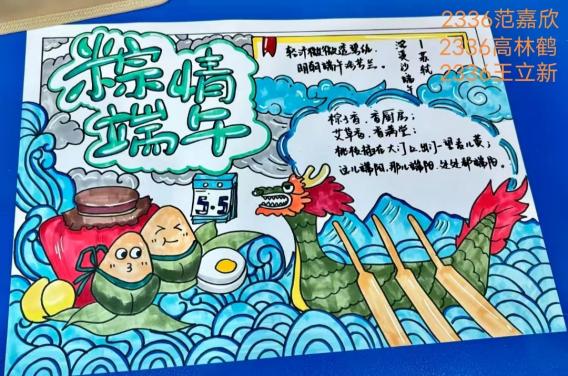 2336范嘉欣
2336高林鹤
2336王立新
粽情
端午
轻汗微微透碧纨,
明朝端午浴芳兰。
浣溪沙·端午
—苏轼
粽子香,香厨房;
艾草香,香满堂;
桃枝插在大门上,出门一望麦儿黄;
这儿端阳,那儿端阳,处处都端阳。
5.5